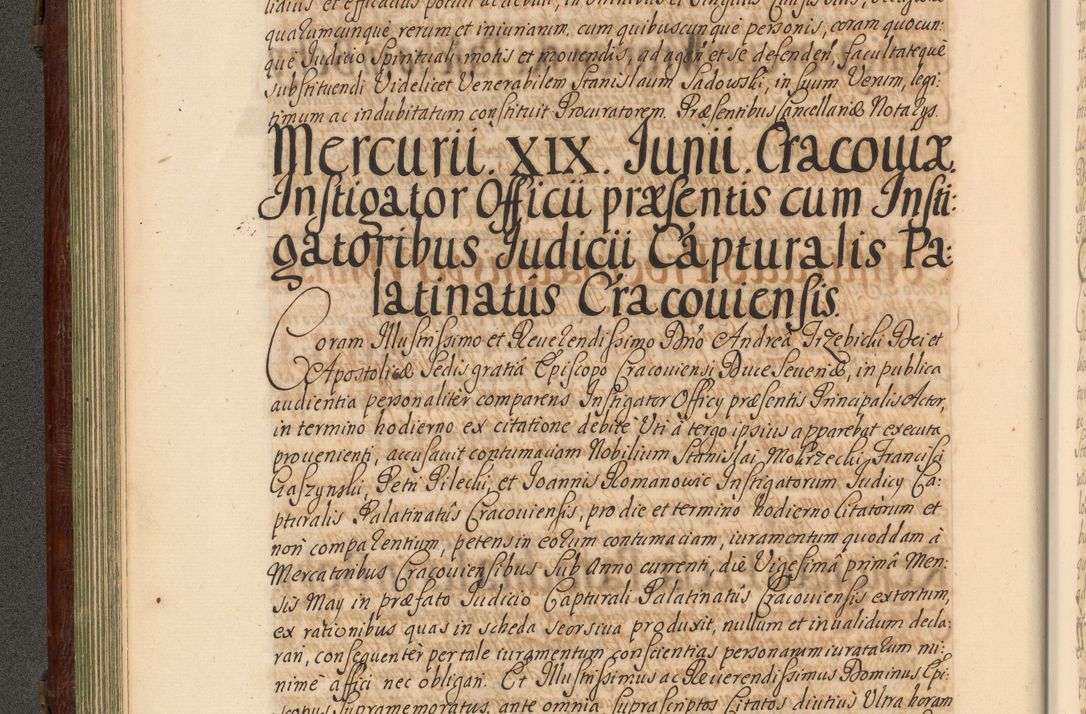 lidius et efficacius potuit ac debuit, in omnibus et singulis
qualumcunque rerum et iniuriarum, cum quibuscunque personis, coram quocun:
que Iudicio Spirituali motis et mouendis, ad agen et se defenden, facultateque
substituendi Videlicet Venerabilem Stanislaum Sadowski, in suum Verum, legi:
timum ac indubitatum constituit Procuratorem. Præsentibus Cancellariæ Notarys.
Mercurii. XIX. Iunii. Cracouiæ.
Instigator Officii præsentis cum Insti:
gatoribus Iudicii Capturalis Pa:
latinatûs Cracouiensis.
Coram Illustrissimo et Reuerendissimo Dnō Andreâ Trzebicki Dei et
Apostolicæ Sedis gratiâ Episcopo Cracouiensi Duce Seueriæ, in publica
audientia personalitèr comparens Instigator Officy præsentis Principalis Actor,
in termino hodierno ex citatione debite Uti â tergo ipsius apparebat executa
proueniente, accusauit contumaciam Nobilium Stanislai Mokrzecki, Francisci
Gaszynski, Petri Pilecki, et Ioannis Romanowic Instigatorum Iudicy Ca:
pturalis Palatinatûs Cracouiensis, pro die et termino hodierno Citatorum et
non comparentium, petens in eorum contumaciam, iuramentum quoddam à
Mercatoribus Cracouiensibus Sub Anno currenti, die Vigesimâ primâ Men:
sis May in præfato Iudicio Capturali Palatinatûs Cracouiensis extortum,
ex rationibus quas in scheda seorsiua produxit, nullum et inualidum decla:
rari, consequentèr per tale iuramentum conscientias personarum iuratarum mi:
nimè affici nec obligari. Et Illustrissimus ac Reuerendissimus Dominus Epi:
scopus supramemoratus, ante omnia suprascriptos Citatos diutius Ultra horam